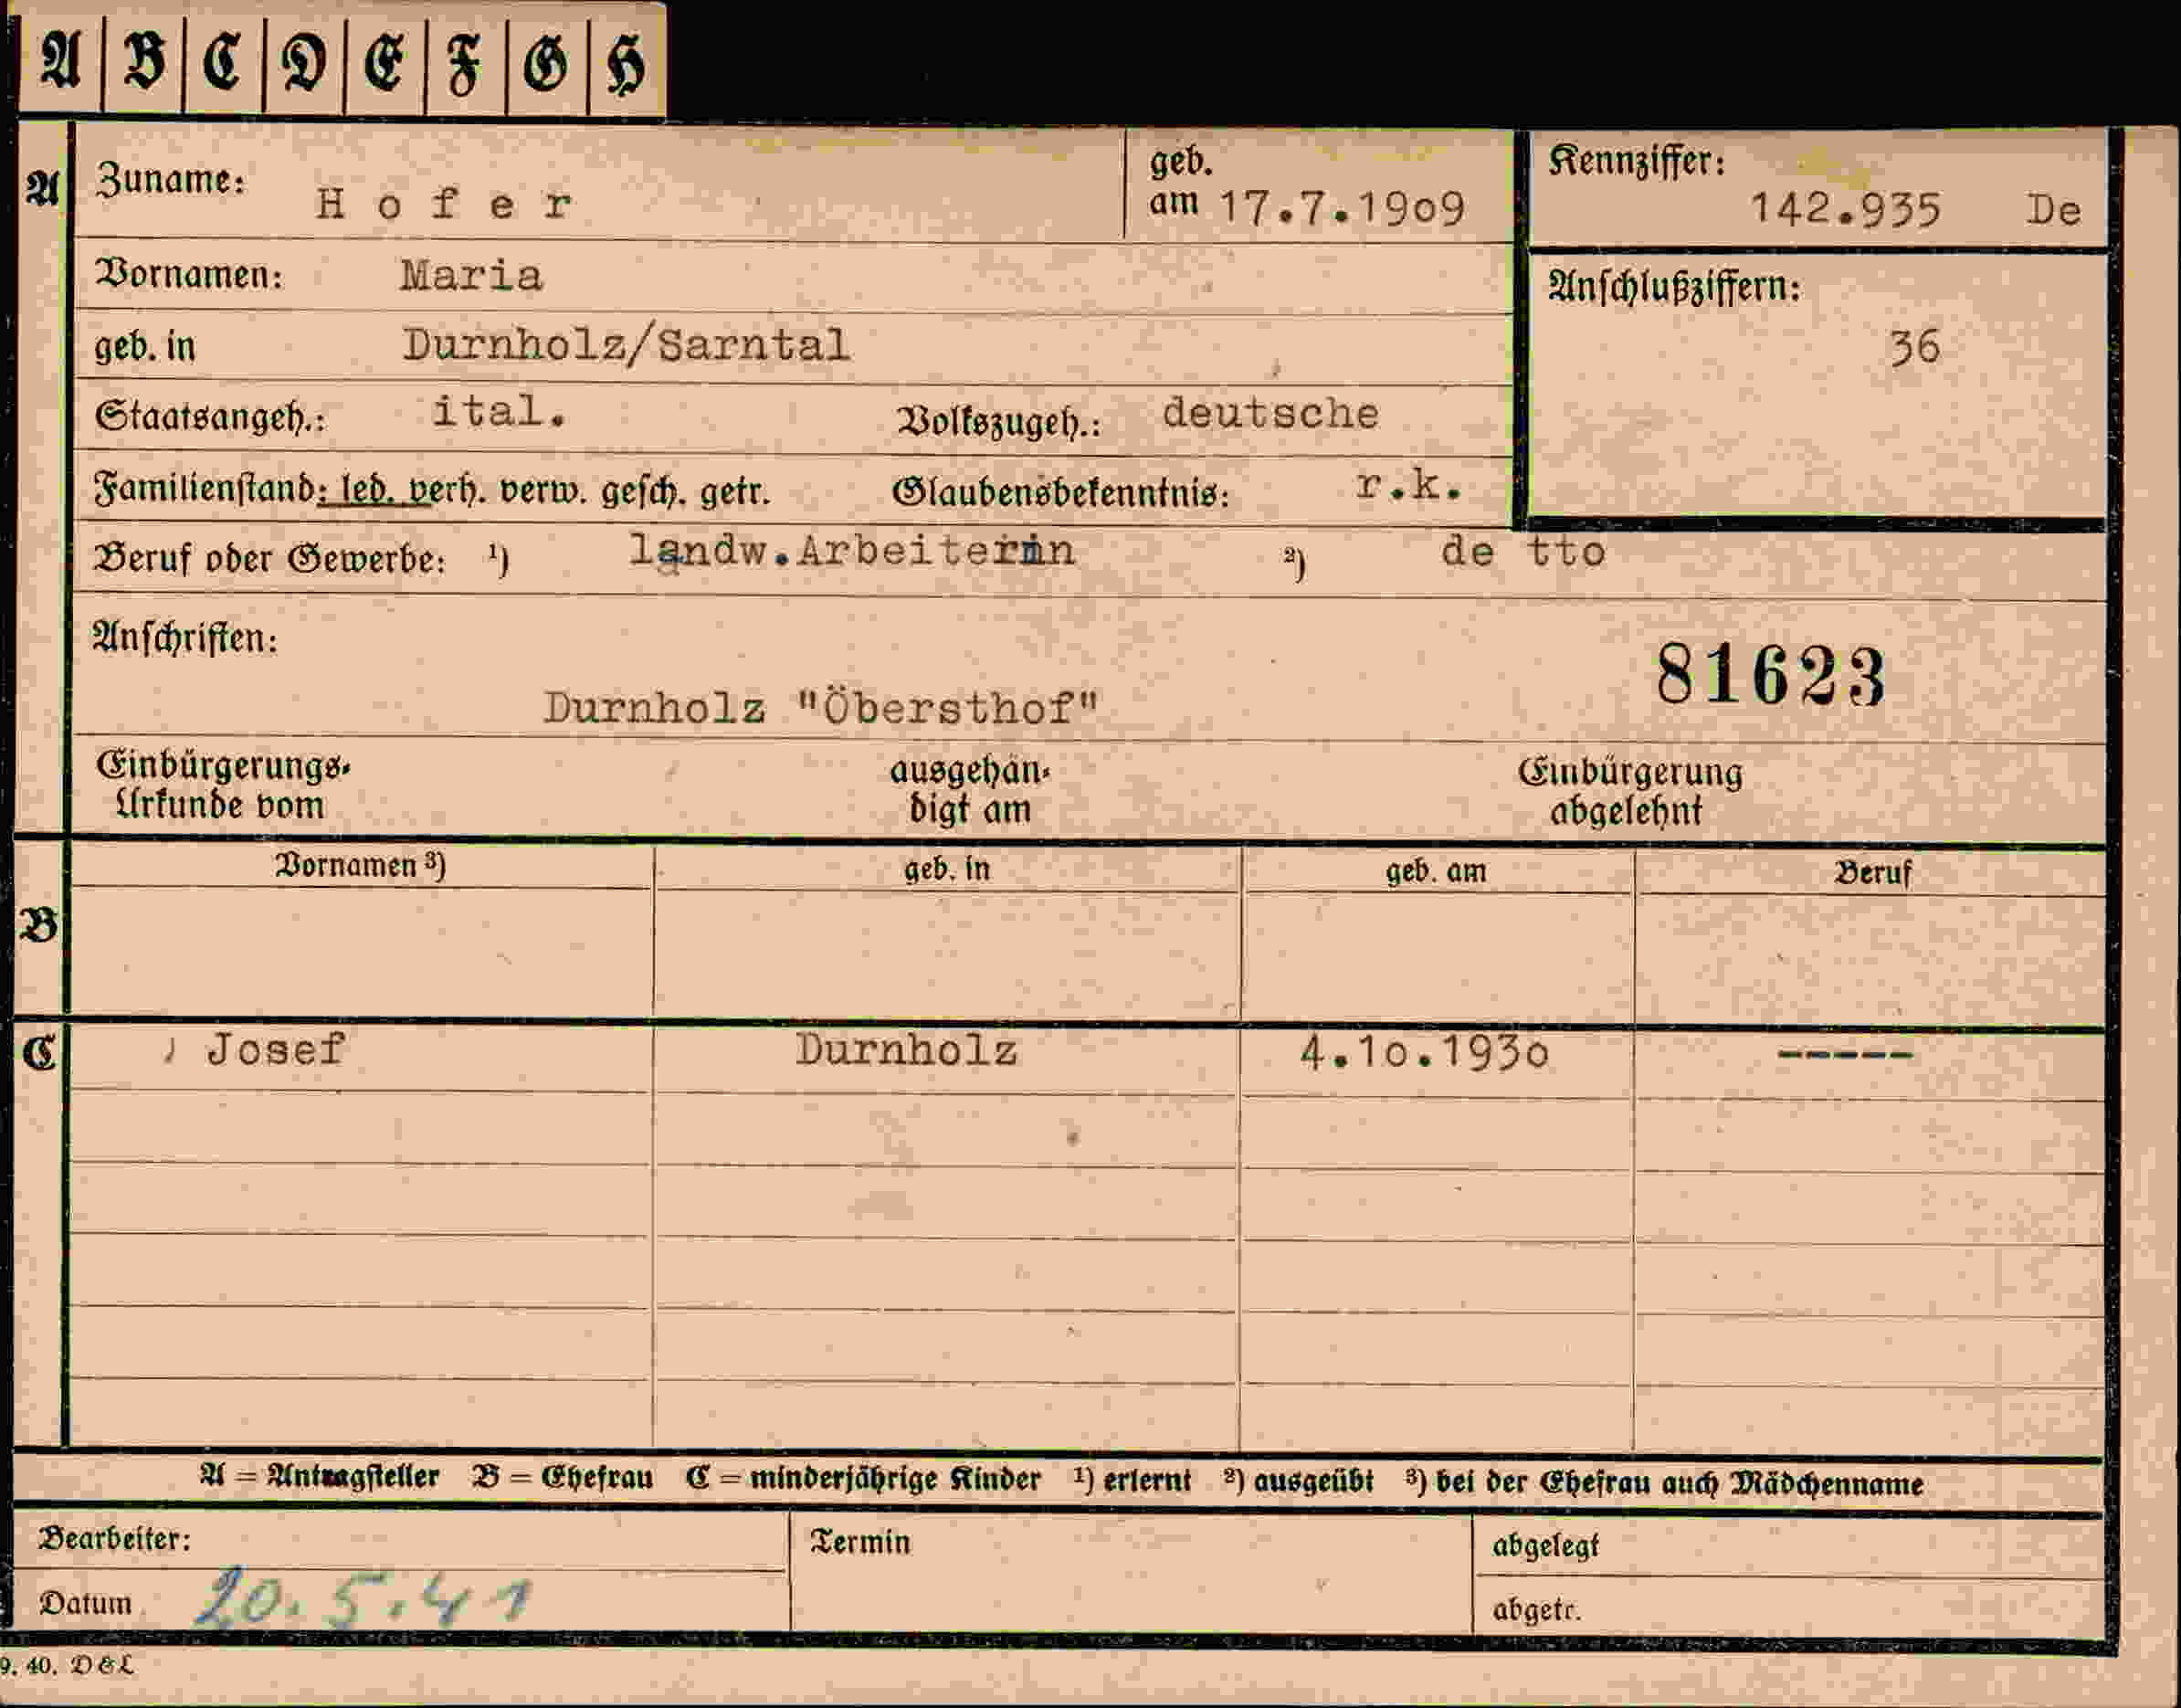 A B C D E F G H
A Zuname: Hofer geb. am 17.7.1909 Kennziffer: 142.935 De
Vornamen: Maria Anschlußziffern:
geb. in Durnholz/Sarntal 36
Staatsangeh.: ital. Volkszugeh.: deutsche
Familienstand: led. verh. verw. gesch. getr. Glaubensbekenntnis: r.k.
Beruf oder Gewerbe: ¹) landw.Arbeiterin ²) de tto
Anschriften: 81623
Durnholz "Öbersthof"
Einbürgerungs- ausgehän- Einbürgerung
Urkunde vom digt am abgelehnt
Vornamen ³) geb. in geb. am Beruf
B
C Josef Durnholz 4.10.1930 -----
A = Antragsteller B = Ehefrau C = minderjährige Kinder ¹) erlernt ²) ausgeübt ³) bei der Ehefrau auch Mädchenname
Bearbeiter: Termin abgelegt
Datum 20.5.41 abgetr.
9. 40. D&L